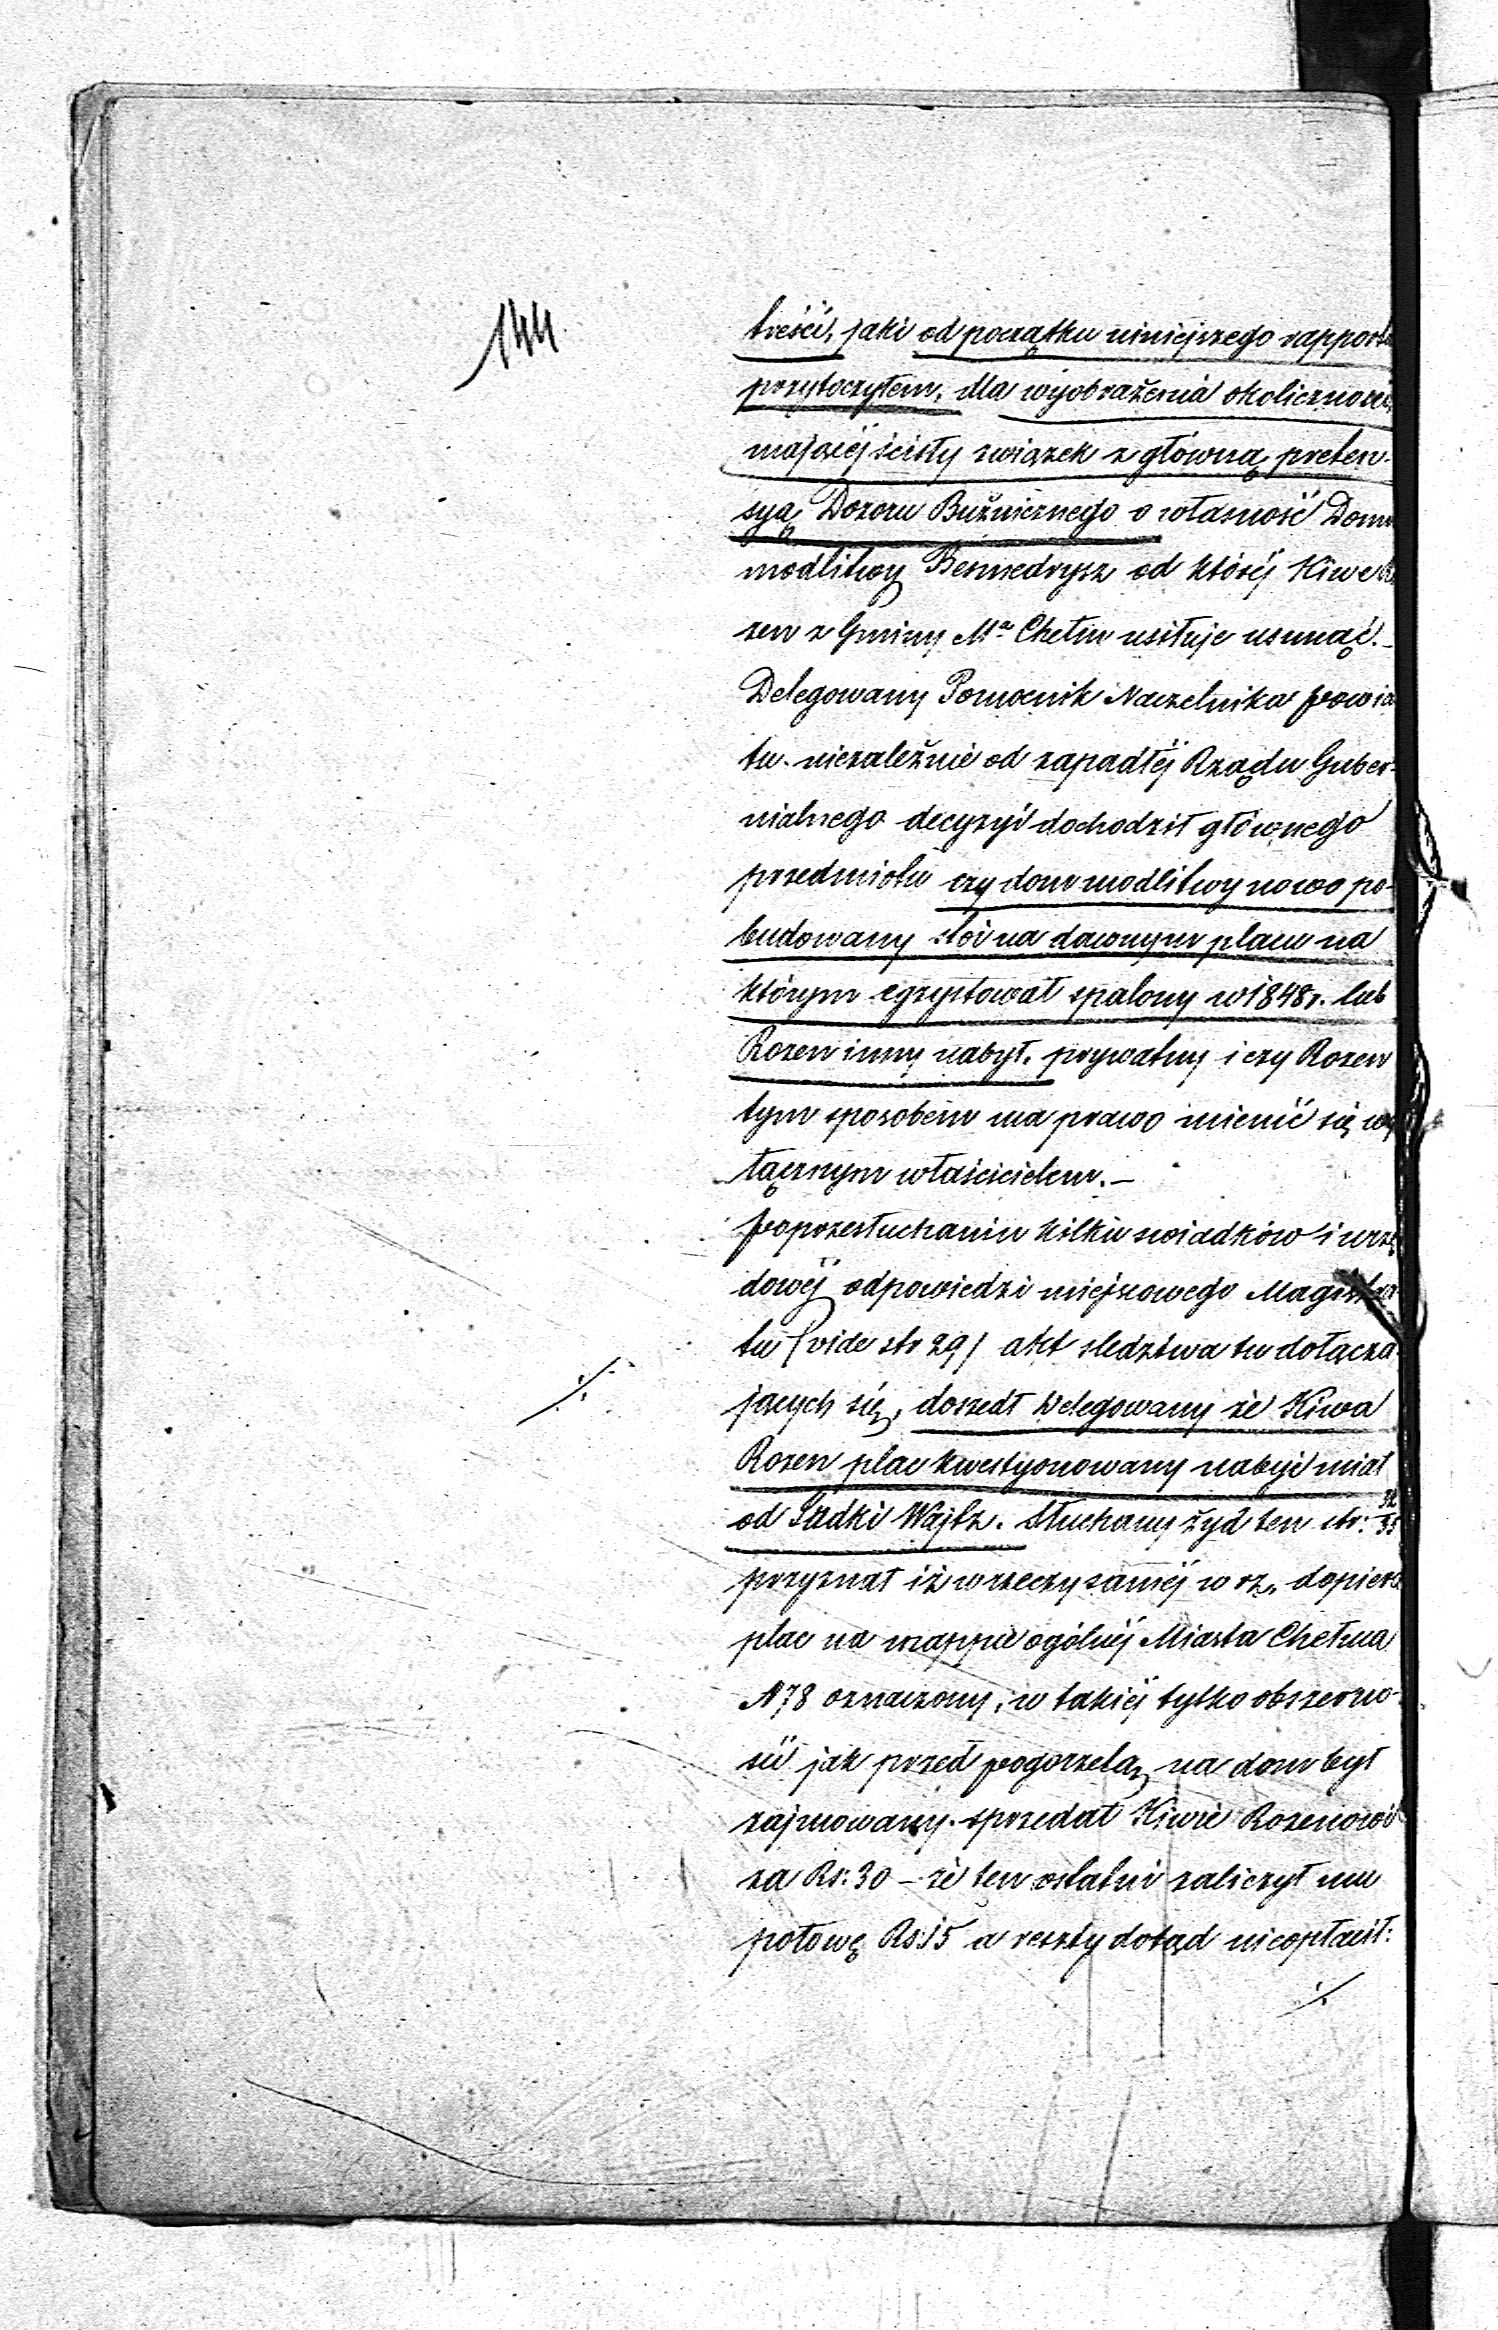 144
treści, jaki od początku niniejszego rapportu
przytoczyłem, dla wyobrażenia okoliczności,
mającéj ścisły związek z główną preten-
syą Dozoru Bużnicznego o własność Domu
modlitwy Besmedrysz od któréj Kiwe Ro
zen z Gminy Mta Chełm usiłuje usunąć. –
Delegowany Pomocnik Naczelnika powia
tu. niezależnie od zapadłéj Rządu Guber-
nialnego decyzyi dochodził głównego
przedmiotu czy dom modlitwy nowo po-
budowany stoi na dawnym placu na
którym egzystował spalony w 1848 r. lub
Rozen inny nabył. prywatny i czy Rozen
tym sposobem ma prawo mienić się wy
łącznym właścicielem. –
po przesłuchaniu kilku swiadków i urzę
dowéj odpowiedzi miejscowego Magistra
tu (vide str 29/ akt sledztwa tu dołącza
jących się, doszedł Delegowany że Kiwa
Rozen plac kwestyonowany nabyć miał
od Szdki Wajtz. Słuchany żyd ten str: 32/33
przyznał iż w rzeczy saméj w rz. dopiero
plac na mappie ogólnéj Miasta Chełma
N 78 oznaczony, w takiéj tylko obszerno-
ści jak przed pogorzelą na dom był
zajmowany. sprzedał Kiwie Rozenowi
za Rs: 30 – że ten ostatni zaliczył mu
połowę Rs: 15 a reszty dotąd nieopłacił:
./.